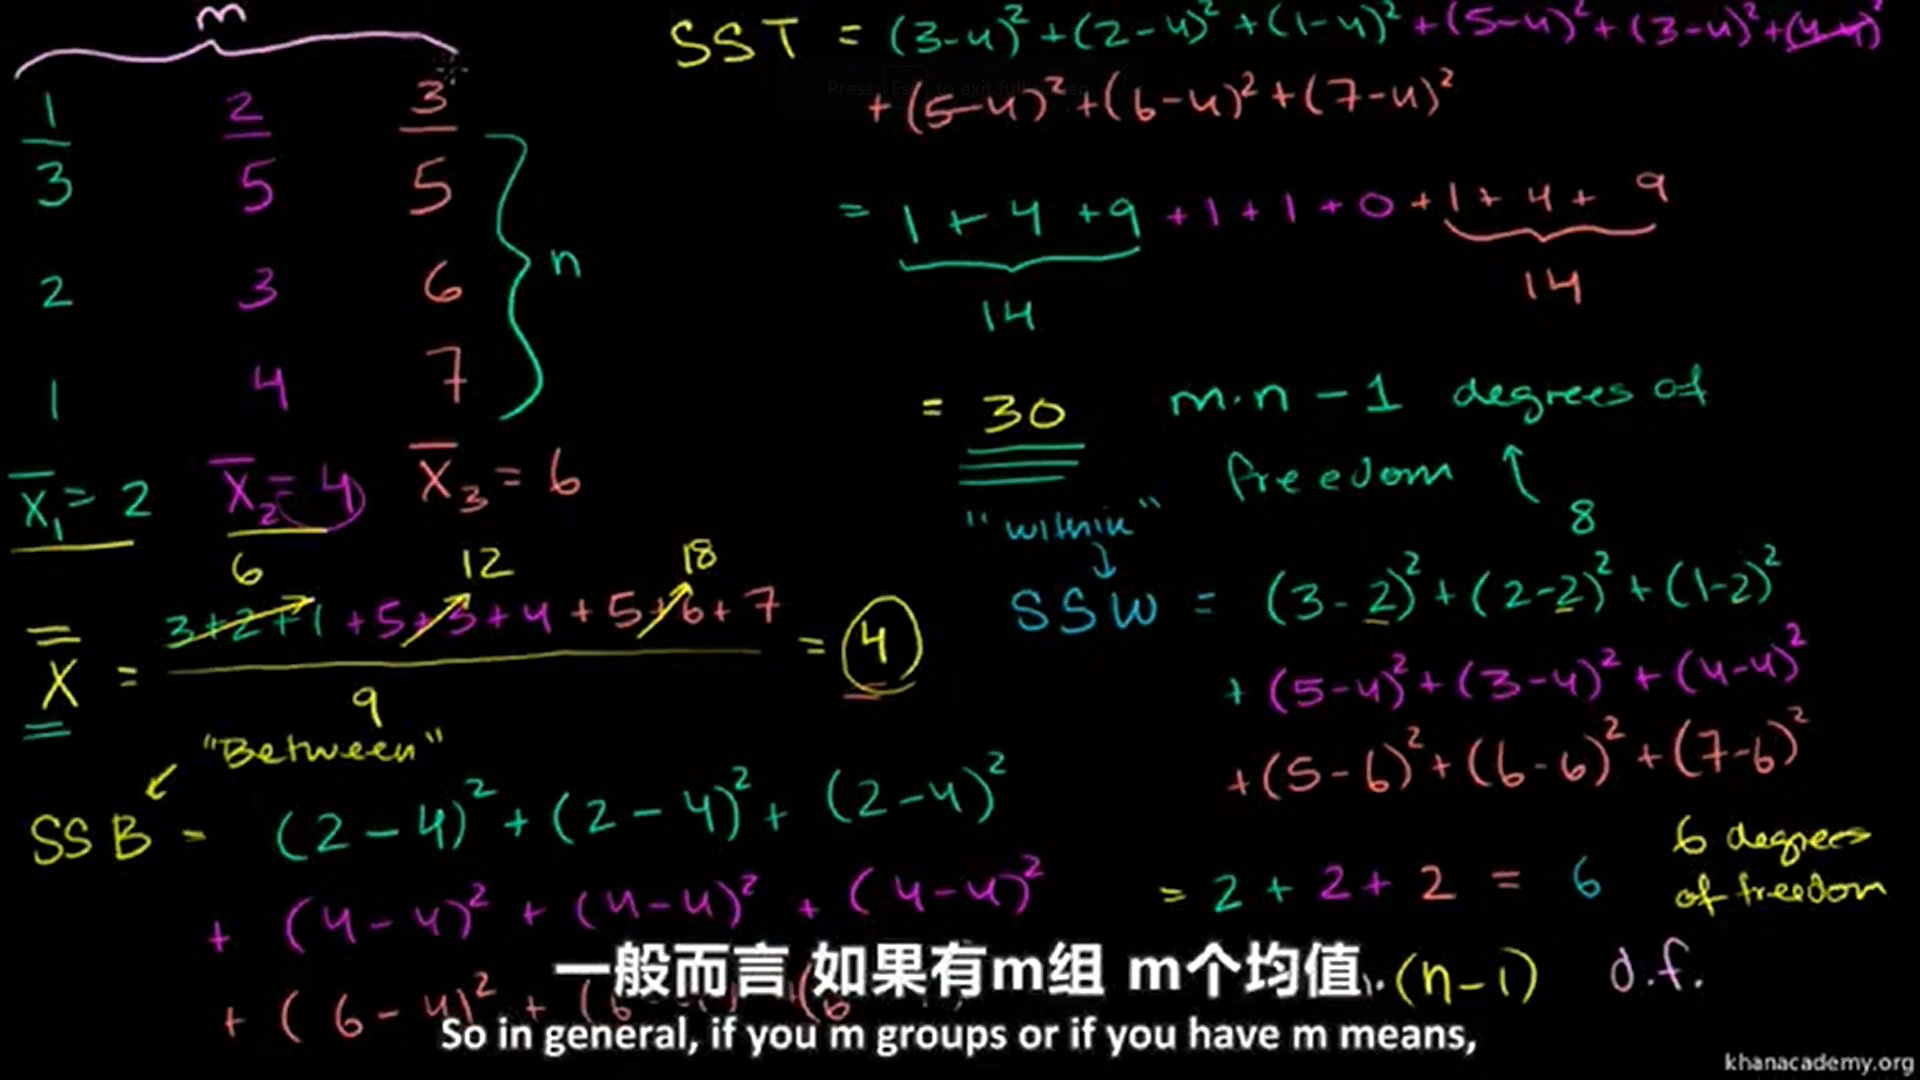 m
1 2 3
3 5 5
2 3 6
1 4 7
n
X̄₁ = 2 X̄₂ = 4 X̄₃ = 6
6 12 18
X̿ = 3+2+1 +5+3+4 +5+6+7 = 4
9
"Between"
SSB = (2-4)² + (2-4)² + (2-4)²
+ (4-4)² + (4-4)² + (4-4)²
+ (6-4)² + (6
SST = (3-4)² + (2-4)² + (1-4)² + (5-4)² + (3-4)² + (4-4)²
+ (5-4)² + (6-4)² + (7-4)²
Press Esc to exit full screen
= 1 + 4 + 9 + 1 + 1 + 0 + 1 + 4 + 9
14 14
= 30 m·n - 1 degrees of
freedom
8
"within"
SSW = (3-2)² + (2-2)² + (1-2)²
+ (5-4)² + (3-4)² + (4-4)²
+ (5-6)² + (6-6)² + (7-6)²
= 2 + 2 + 2 = 6 6 degrees
of freedom
·(n-1) d.f.
一般而言 如果有m组 m个均值
So in general, if you m groups or if you have m means,
khanacademy.org